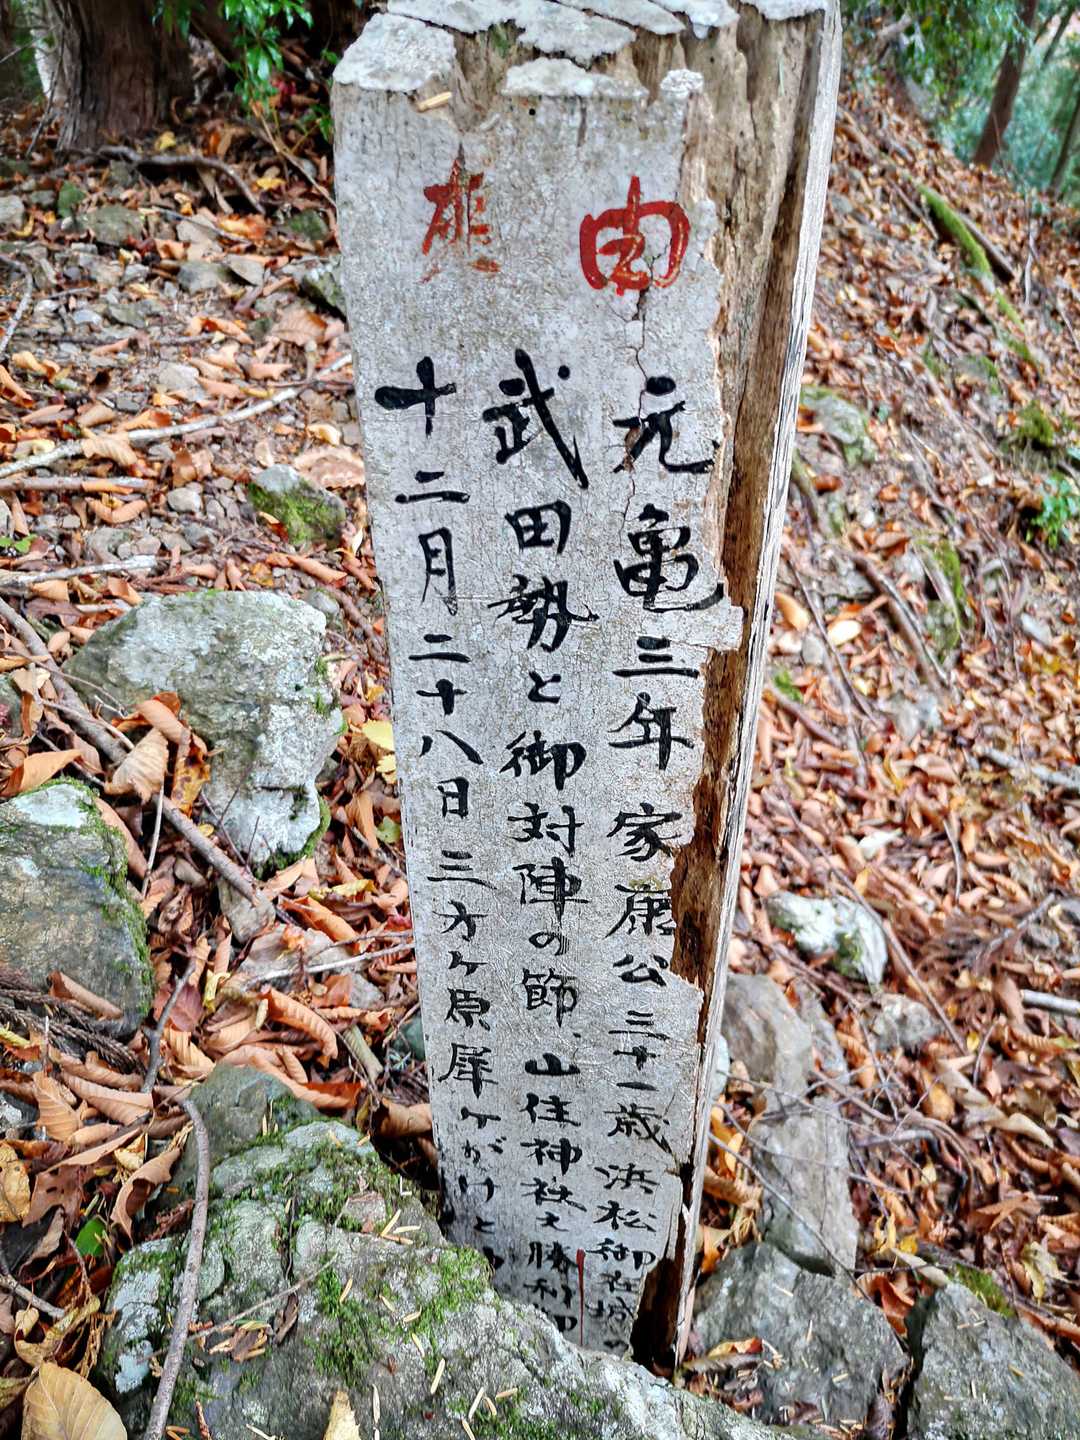 由
元亀三年家康公三十一歳浜松御在城の
武田勢と御対陣の節、山住神社え勝利御
十二月二十八日三方ヶ原犀ヶがけと